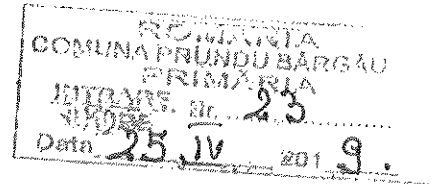 ROMÂNIA
COMUNA PRUNDU BÂRGĂU
PRIMĂRIA
INTRARE Nr. 23
IEȘIRE
Data 25 IV 2019.